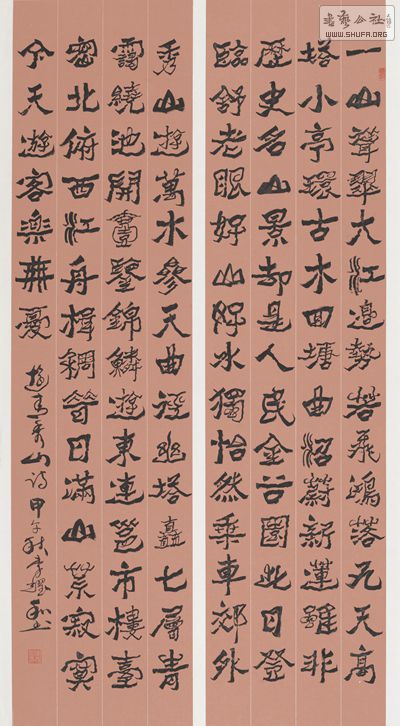 書藝公社
WWW.SHUFA.ORG
一山聳翠大江邊勢若飛鴻落九天高
塔小亭環古木回塘曲沼蔚新蓮雖非
歷史名山景却是人民金谷園此日登
臨舒老眼好山好水獨怡然乘車郊外
秀山遊萬木參天曲徑幽塔矗七層青
靄繞池開畫鑒錦鱗遊東連邕市樓臺
密北俯西江舟楫稠昔日滿山荒寂寞
今天遊客樂無憂
青秀山诗甲午秋李